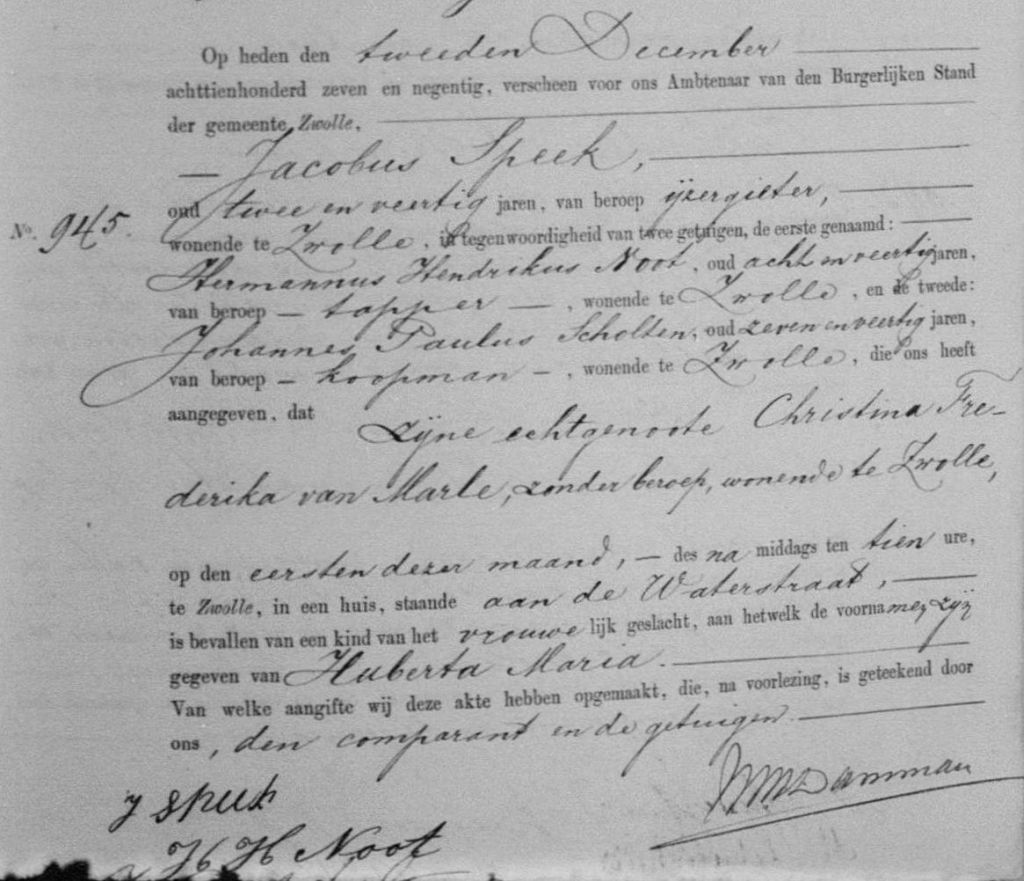 Op heden den tweeden December
achttienhonderd zeven en negentig, verscheen voor ons Ambtenaar van den Burgerlijken Stand
der gemeente Zwolle,
— Jacobus Speek,
oud twee en veertig jaren, van beroep ijzergieter,
No. 945.
wonende te Zwolle, in tegenwoordigheid van twee getuigen, de eerste genaamd:
Hermannus Hendrikus Noot, oud acht en veertig jaren,
van beroep — tapper —, wonende te Zwolle, en de tweede:
Johannes Paulus Scholten, oud zeven en veertig jaren,
van beroep — koopman —, wonende te Zwolle, die ons heeft
aangegeven, dat zijne echtgenoote Christina Fre-
derika van Marle, zonder beroep, wonende te Zwolle,
op den eersten dezer maand, — des na middags ten tien ure,
te Zwolle, in een huis, staande aan de Waterstraat,
is bevallen van een kind van het vrouwelijk geslacht, aan hetwelk de voornamen zijn
gegeven van Huberta Maria.
Van welke aangifte wij deze akte hebben opgemaakt, die, na voorlezing, is geteekend door
ons, den comparant en de getuigen.
Damman
J Speek
H H Noot